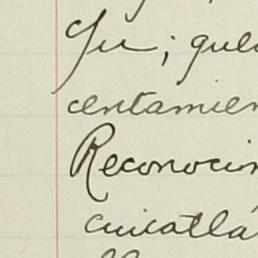 Yu ; que
centamien
Reconocim
cuicatlá